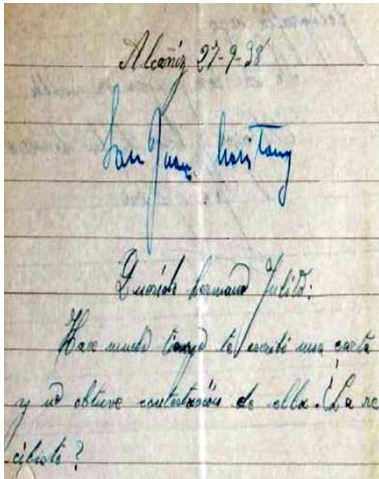 Alcañiz 27-9-38
San Juan
Querido hermano Julito:
Hace mucho tiempo te escribí una carta
y no obtuve contestación de ella. ¿La re
cibiste?